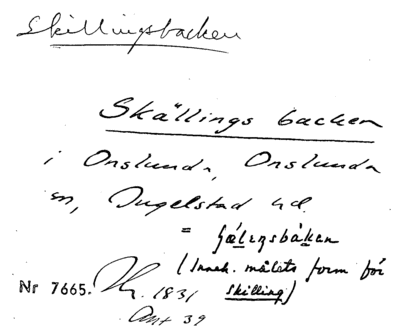 Skillingsbacken
Skällings backen
i Onslunda, Onslunda
sn, Ingelstad hd.
= sǽlıŋsbáken
(Inneh. målets form för
skilling)
Nr 7665. 1831
Ant 39